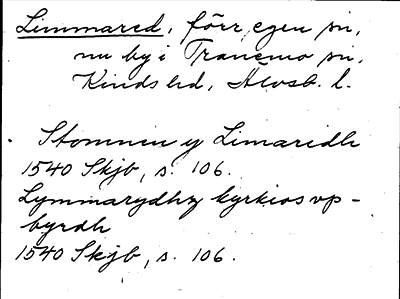 Limmared, förr egen sn,
nu by i Tranemo sn,
Kinds hd, Älvsb. l.
Stommen y Limaridh
1540 Skjb, s. 106.
Lymmarydhz kyrkios vp-
byrdh
1540 Skjb, s. 106.